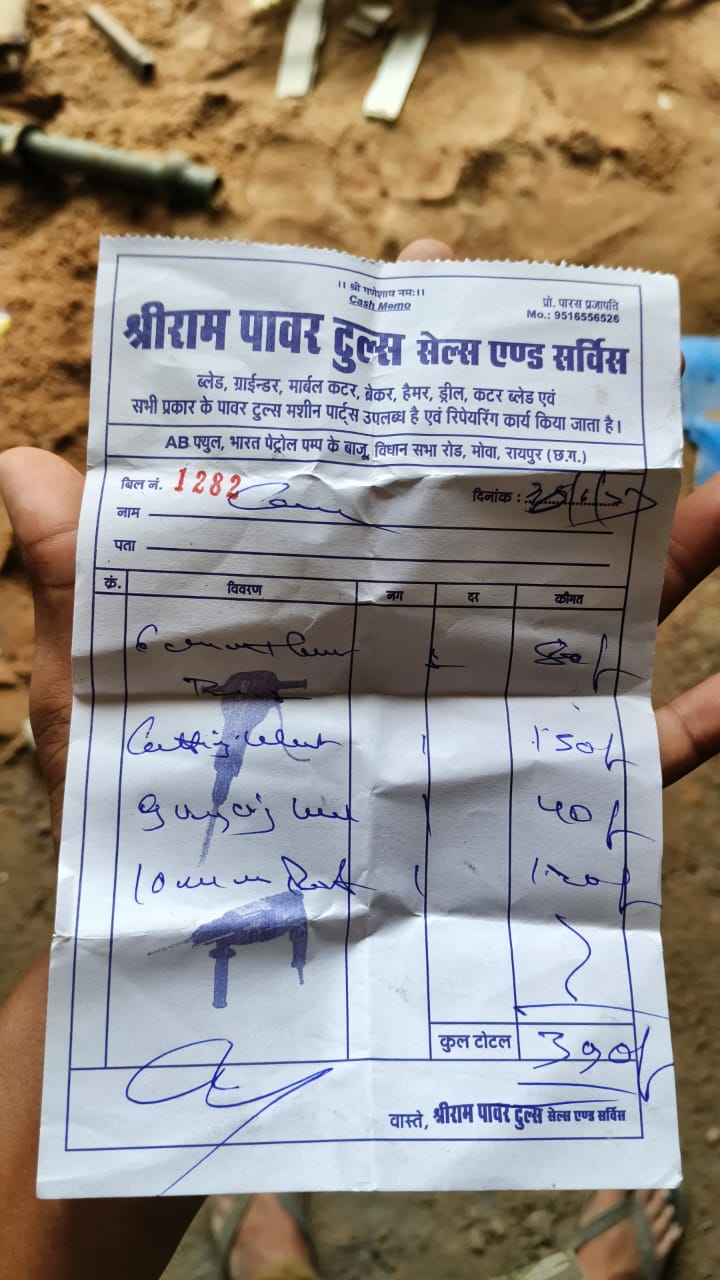 ।। श्री गणेशाय नमः।।
Cash Memo
प्रो. पारस प्रजापति
Mo.: 9516556526
श्रीराम पावर टुल्स सेल्स एण्ड सर्विस
ब्लेड, ग्राईन्डर, मार्बल कटर, ब्रेकर, हैमर, ड्रील, कटर ब्लेड एवं
सभी प्रकार के पावर टुल्स मशीन पार्ट्स उपलब्ध है एवं रिपेयरिंग कार्य किया जाता है।
AB फ्युल, भारत पेट्रोल पम्प के बाजू, विधान सभा रोड, मोवा, रायपुर (छ.ग.)
बिल नं. 1282
दिनांक :
नाम
पता
कं. विवरण नग दर कीमत
1 150/-
1 40/-
10 mm 1 120/-
कुल टोटल 390/-
वास्ते, श्रीराम पावर टुल्स सेल्स एण्ड सर्विस